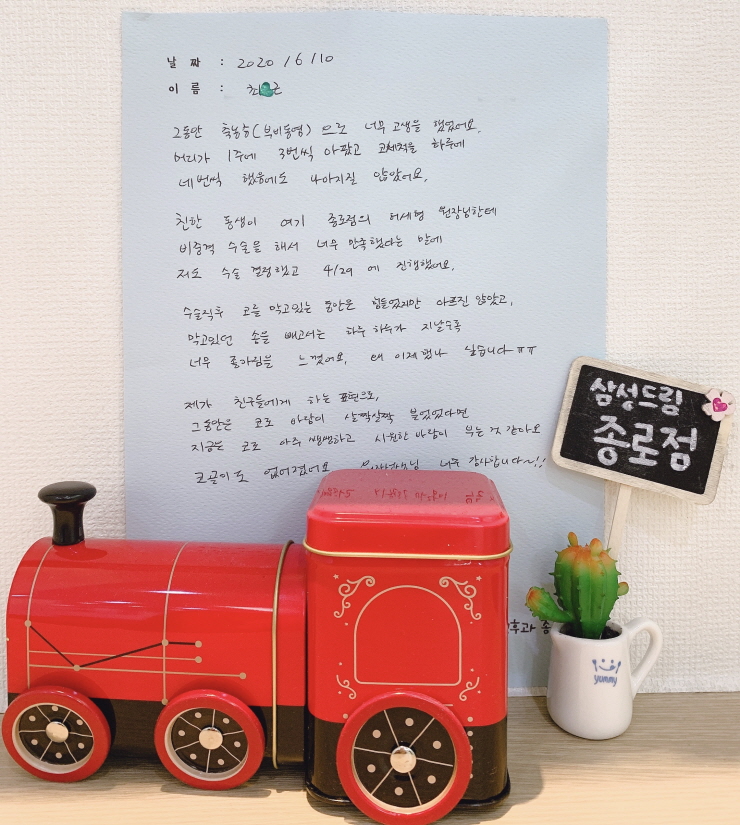 날 짜 : 2020 / 6 / 10
이 름 : 최 근
그동안 축농증(부비동염) 으로 너무 고생을 했었어요.
머리가 1주에 3번씩 아팠고 코세척을 하루에
네번씩 했음에도 나아지질 않았어요.
친한 동생이 여기 종로점의 허세형 원장님한테
비중격 수술을 해서 너무 만족했다는 말에
저도 수술 결정했고 4/29 에 진행했어요.
수술직후 코를 막고있는 동안은 힘들었지만 아프진 않았고,
막고있던 솜을 빼고서는 하루 하루가 지날수록
너무 홀가분함을 느꼈어요. 왜 이제 했나 싶습니다 ㅠㅠ
제가 친구들에게 하는 표현으로,
그동안은 코로 바람이 살짝살짝 불었었다면
지금은 코로 아주 쌩쌩하고 시원한 바람이 부는 것 같아요
코골이도 없어졌어요 원장선생님 너무 감사합니다~!!
삼성드림
종로점
후과 종
yummy